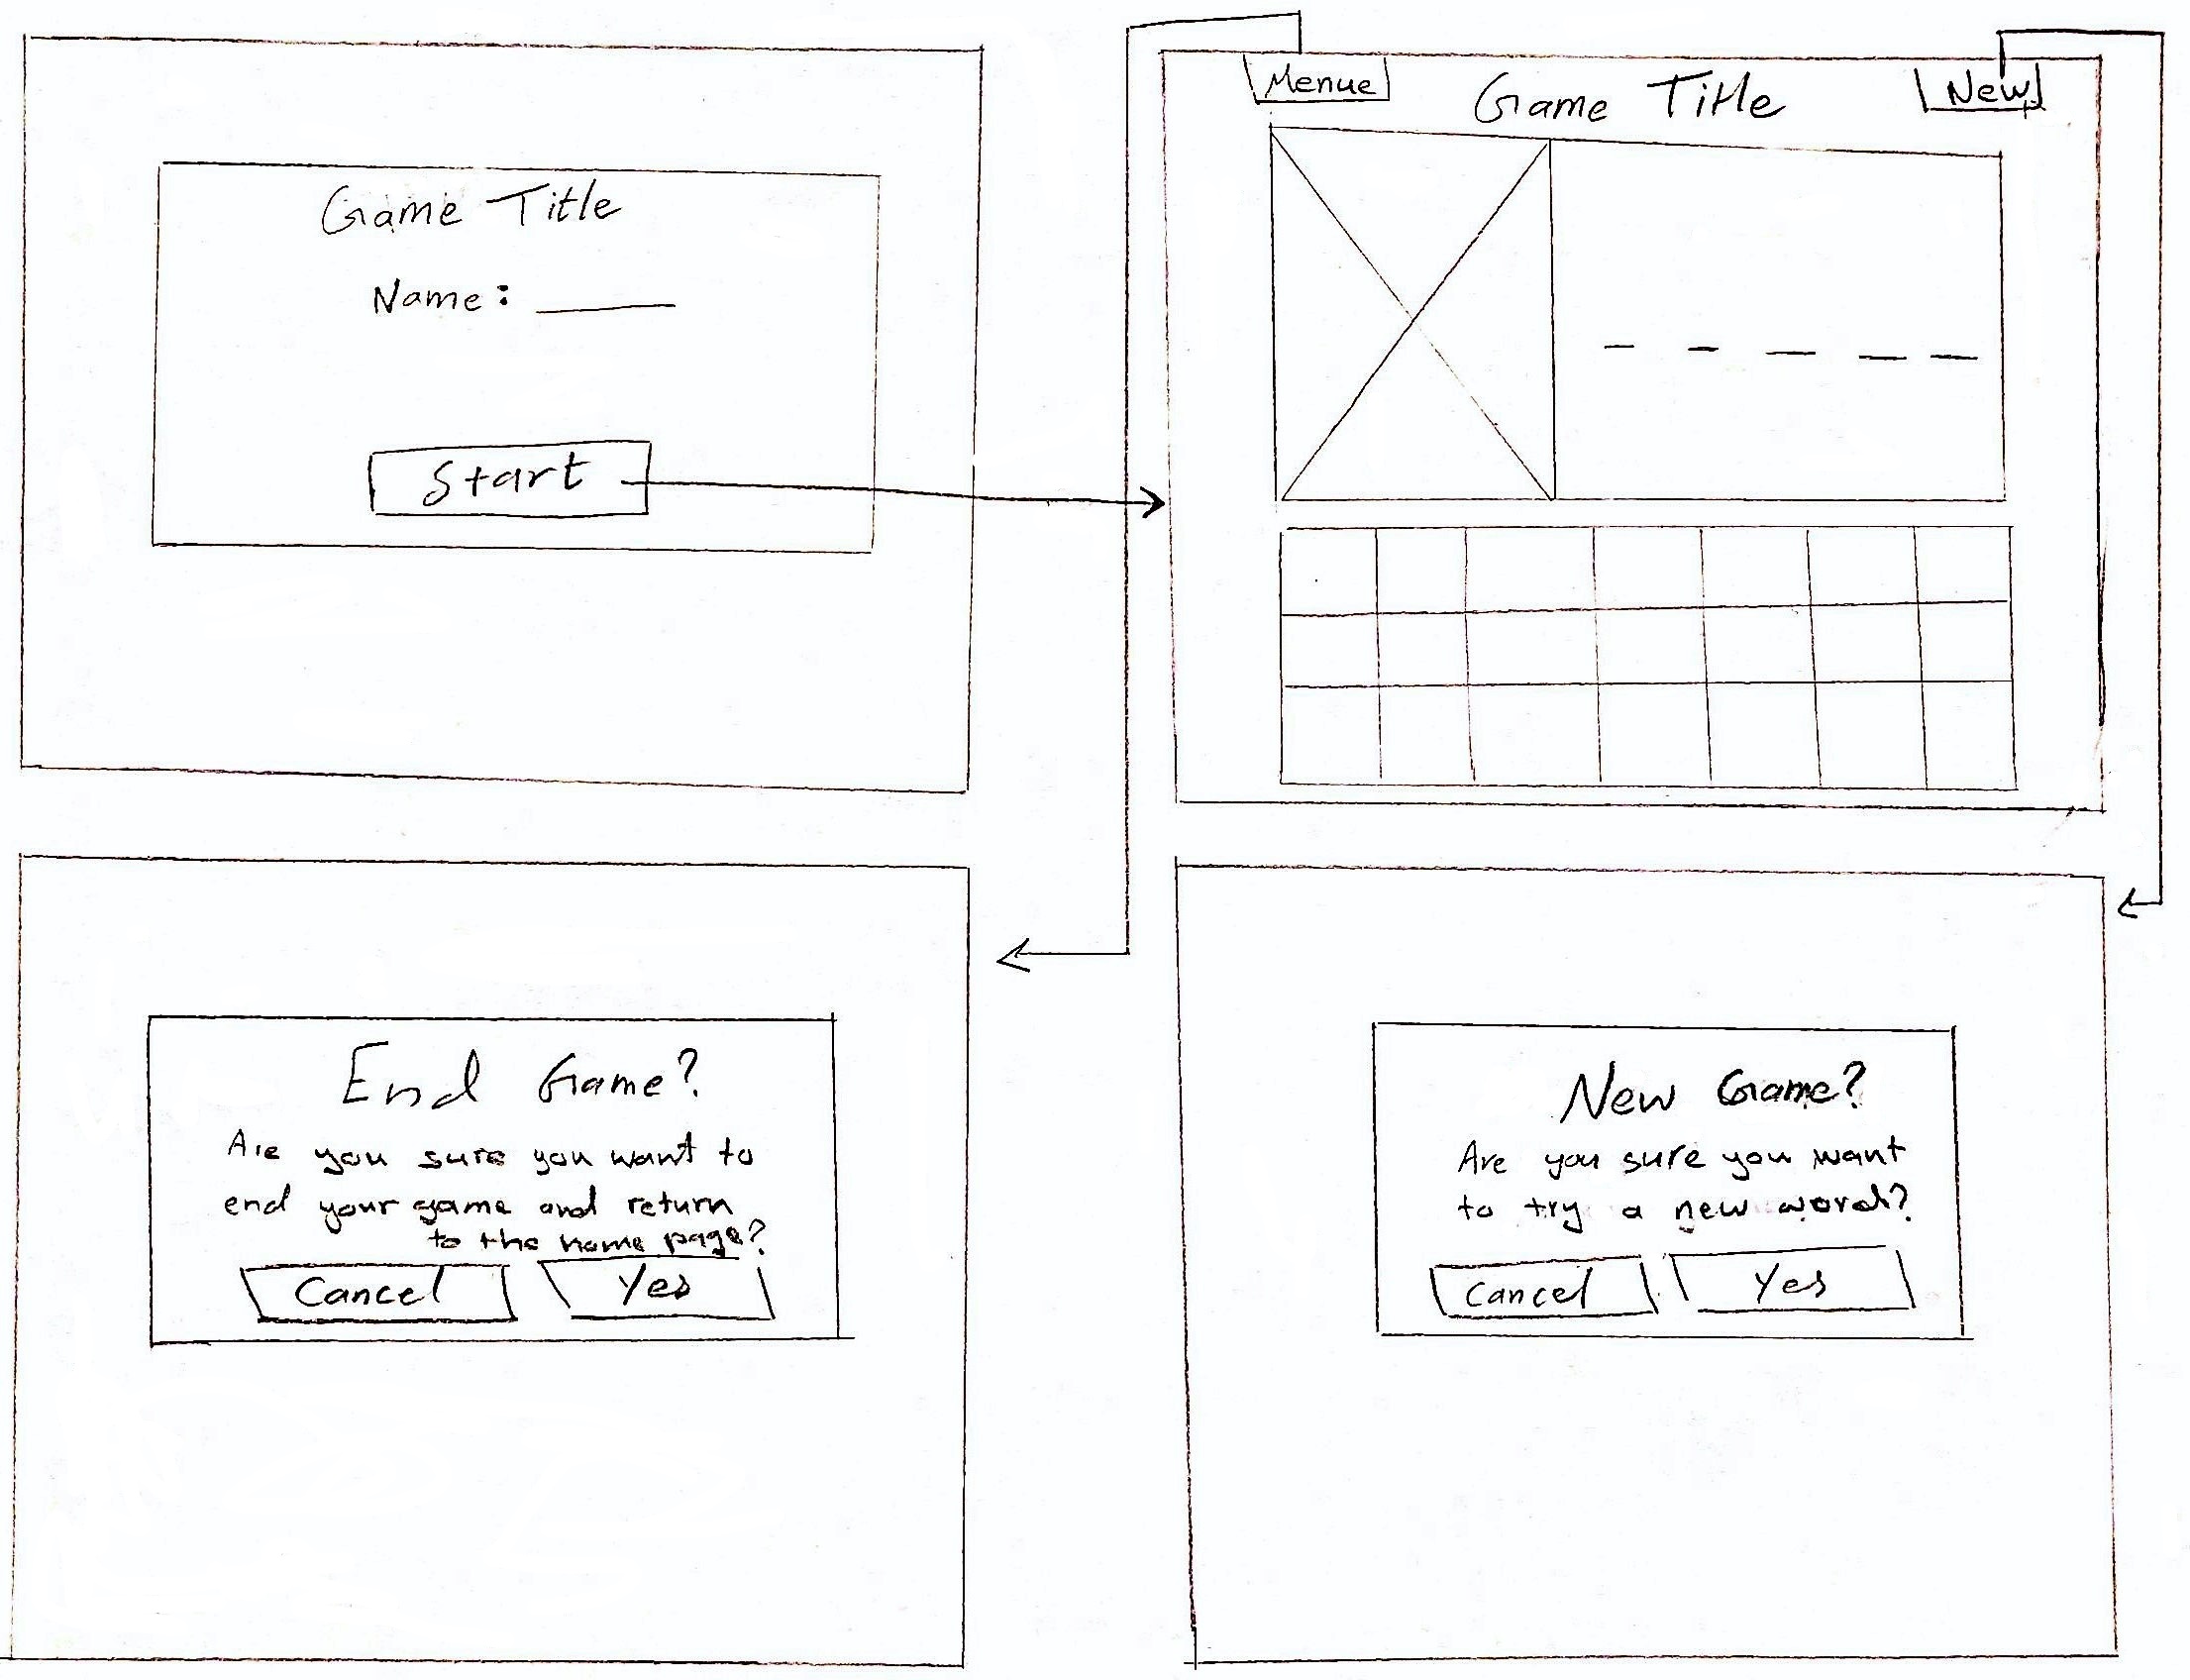 Game Title
Name: ____
Start
Menue
Game Title
New
_ _ _ _ _
End Game?
Are you sure you want to
end your game and return
to the home page?
Cancel
Yes
New Game?
Are you sure you want
to try a new word?
Cancel
Yes